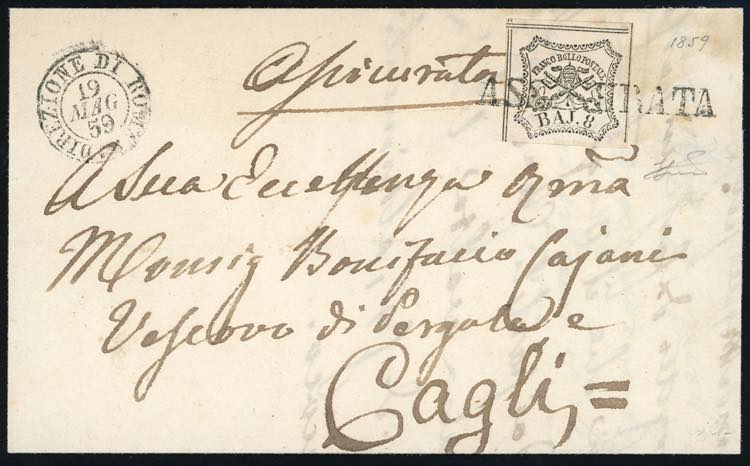 DIREZIONE DI ROMA
19
MAG
59
Assicurata
1859
FRANCO BOLLO POSTALE
BAJ. 8
ASSICURATA
A Sua Eccellenza Rma
Monsig Bonifacio Cajani
Vescovo di Pergola e
Cagli =